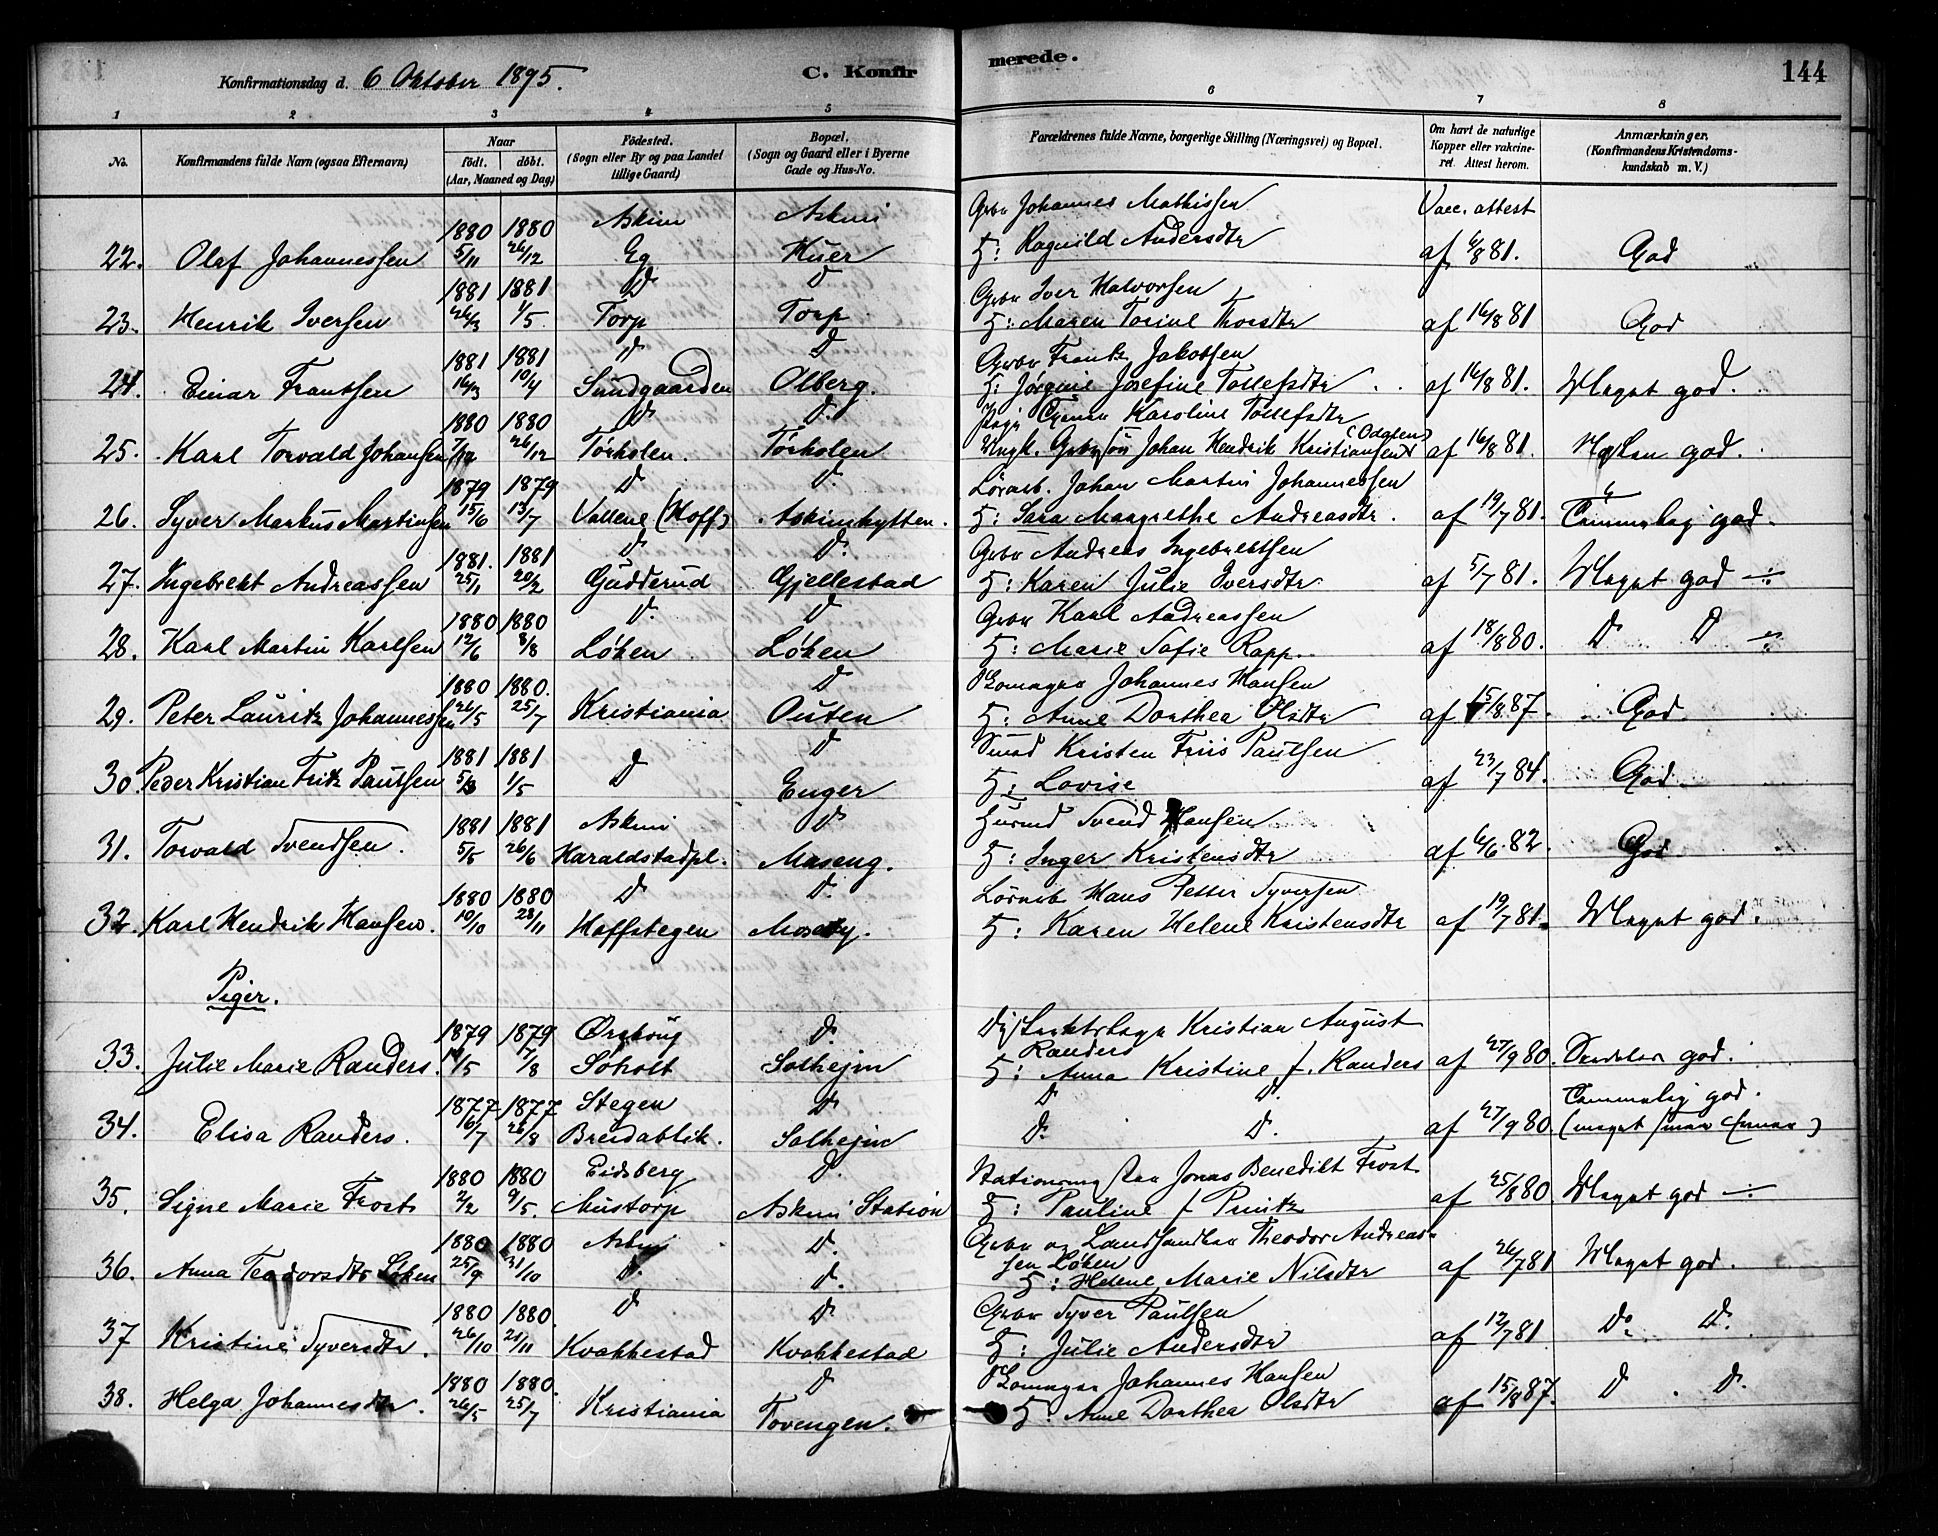 Konfirmationsdag d. 6 Oktober 1895.
C. Konfirmerede.
144
1 2 3 4 5 6 7 8
No.
Konfirmandens fulde Navn (ogsaa Efternavn)
Naar født. døbt. (Aar, Maaned og Dag)
Fødested. (Sogn eller By og paa Landet tillige Gaard)
Bopæl. (Sogn og Gaard eller i Byerne Gade og Hus-No.
Forældrenes fulde Navne, borgerlige Stilling (Næringsvei) og Bopæl.
Om havt de naturlige Kopper eller vakcineret. Attest herom.
Anmærkninger. (Konfirmandens Kristendomskundskab m. V.)
1880 1880 Askim Askim Grbr Johannes Mathissen Vacc. attest
22. Olaf Johannessen 5/11 26/12 Eg Huer H: Ragnild Andersdtr af 6/8 81. God
1881 1881 D D Grbr Iver Halvorsen
23. Henrik Iversen 26/3 1/5. Torp Torp H: Maren Torine Thorsdtr af 16/8 81 God
1881 1881 D D Grbr Frantz Jakobsen
24. Einar Frantsen 16/3 10/4 Sundgaarden Olberg. H: Jørgine Josefine Tollefsdtr. af 16/8 81. Meget god.
1880 1880 D D. Pige Karoline Tollefsdtr
25. Karl Torvald Johansen 7/12 26/12 Torkolen. Torkolen Ungk. Grbrsøn Johan Hendrik Kristiansen (Odalen) af 16/8 81. god.
1879 1879 D D. Løsarb. Johan Martin Johannessen
26. Syver Markus Martinsen 15/6 13/7 Vollene (Hoff) Askimhytten. H: Sara Margrethe Andreasdtr. af 19/7 81. Temmelig god.
1881. 1881 D D. Grbr Andreas Ingebrektsen
27. Ingebrekt Andreassen 25/1 20/2 Gudderud Gjellestad H: Karen Julie Iversdtr af 5/7 81. Meget god ÷
1880 1880 D. D Grbr Karl Andreassen
28. Karl Martin Karlsen 12/6 8/8 Løken Løken H: Marie Sofie Rapp. af 18/8 80. D D ÷
1880 1880. D Skomager Johannes Hansen
29. Peter Lauritz Johannessen 26/5 25/7 Kristiania Outen H: Anne Dorthea Olsdtr af 15/8 87. God
1881 1881 D Smed Kristen Friis Paulsen
30. Peder Kristian Fritz Paulsen 5/3 1/5 D Enger H: Lovise af 23/7 84. God
1881 1881 Askim D Husmd Svend Hansen
31. Torvald Svendsen. 5/5 26/6 Haraldstadpl. Moseng. H: Inger Kristensdtr af 6/6 82. God
1880 1880 D D. Løsarb Hans Petter Syversen
32. Karl Hendrik Hansen. 10/10 28/11 Hoffstegen Moseby. H: Karen Helene Kristensdtr af 19/7 81. Meget god.
Piger.
1879 1879 Ørskoug D. Kristian August Randers
33. Julie Marie Randers. 14/5 17/8 Søholt Solhejm H: Anna Kristine f. Randers af 27/9 80. god.
1877 1877 Stegen D D D. Temmelig god.
34. Elisa Randers. 16/7 26/8 Breidablik. Solhejm D. D. af 27/9 80. (meget)
1880 1880 Eidsberg D. Jonas Benedikt Frost
35. Signe Marie Frost 2/2 9/5. Mustorp Askim Station H: Pauline f Printz af 25/8 80 Meget god ÷
1880 1880 Askim D. Grbr og Landhandler Theodor Andreassen Løken
36. Anna Teodorsdtr Løken 25/9 31/10 D. D. H: Helene Marie Nilsdtr af 26/7 81 Meget god.
1880 1880. D D Grbr Syver Paulsen
37 Kristine Syversdtr. 26/10 21/11 Kvakkestad Kvakkestad H: Julie Andersdtr af 12/7 81 D. D.
1880 1880. D Skomager Johannes Hansen
38. Helga Johannesdtr. 26/5 25/7 Kristiania Tovengen. H: Anne Dorthea Olsdtr af 15/8 87. D. D.